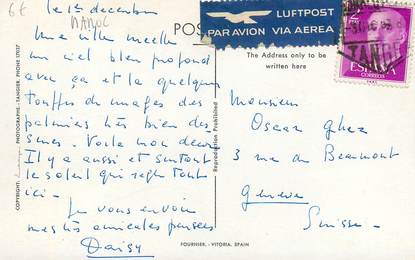 6€
le 1er decembre
MAROC
Une ville nouvelle
un ciel bleu profond
avec ça et la quelques
touffes de nuages des
palmiers très bien des
Voila mon decor
Il y a aussi et surtout
le soleil qui regle tout
ici.
Je vous envoie
mes très amicales pensées
Daisy
COPYRIGHT: PHOTOGRAPHE - TANGIER, PHONE
Reproduction Prohibited
FOURNIER, - VITORIA, SPAIN
POS
LUFTPOST
PAR AVION VIA AEREA
The Address only to be
written here
TANGE
ESPAÑA
CORREOS
Monsieur
Oscar Ghez
3 rue de Beaumont
Geneve
Suisse